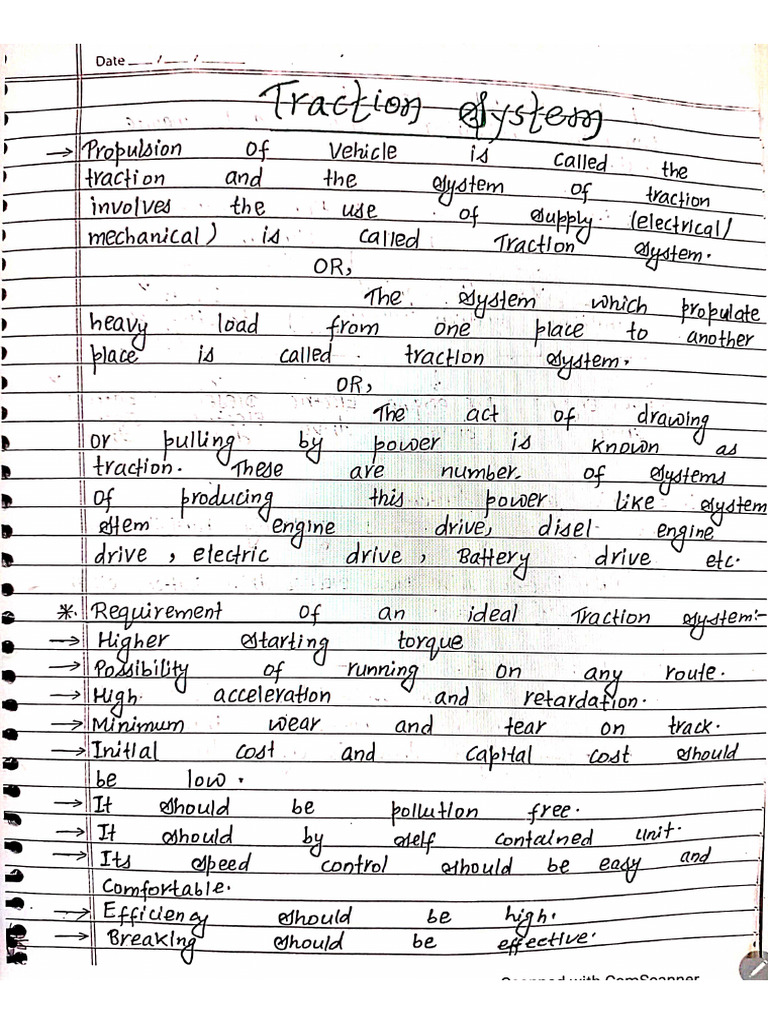 Date __/__/____
Traction System
→ Propulsion of vehicle is called the
traction and the system of traction
involves the use of supply (electrical/
mechanical) is called Traction system.
OR,
The system which propulate
heavy load from one place to another
place is called traction system.
OR,
The act of drawing
or pulling by power is known as
traction. These are number. of systems
of producing this power like system
stem engine drive, disel engine
drive, electric drive, Battery drive etc.
*. Requirement of an ideal Traction system:-
→ Higher starting torque
→ Possibility of running on any route.
→ High acceleration and retardation.
→ Minimum wear and tear on track.
→ Initial cost and capital cost should
be low.
→ It should be pollution free.
→ It should by self contained unit.
→ Its speed control should be easy and
comfortable.
→ Efficiency should be high.
→ Breaking should be effective.